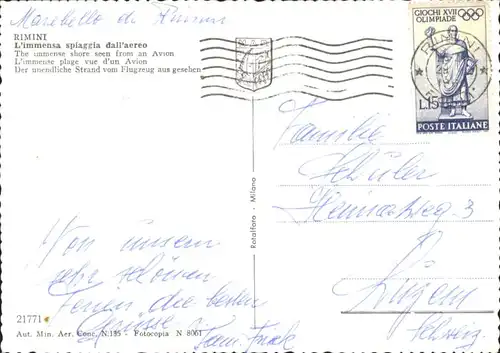 Marebello di Rimini
RIMINI
L'immensa spiaggia dall'aereo
The immense shore seen from an Avion
L'immense plage vue d'un Avion
Der unendliche Strand vom Flugzeug aus gesehen
GIOCHI XVII
OLIMPIADE
RIMINI
L.15
POSTE ITALIANE
Familie
Schüler
3
Luzern
Schweiz
Rotalfoto - Milano
Von unsern
sehr schönen
Ferien die besten
Grüsse
Fam. Frank
21771
Aut. Min. Aer. Conc. N.135 - Fotocopia N 8061